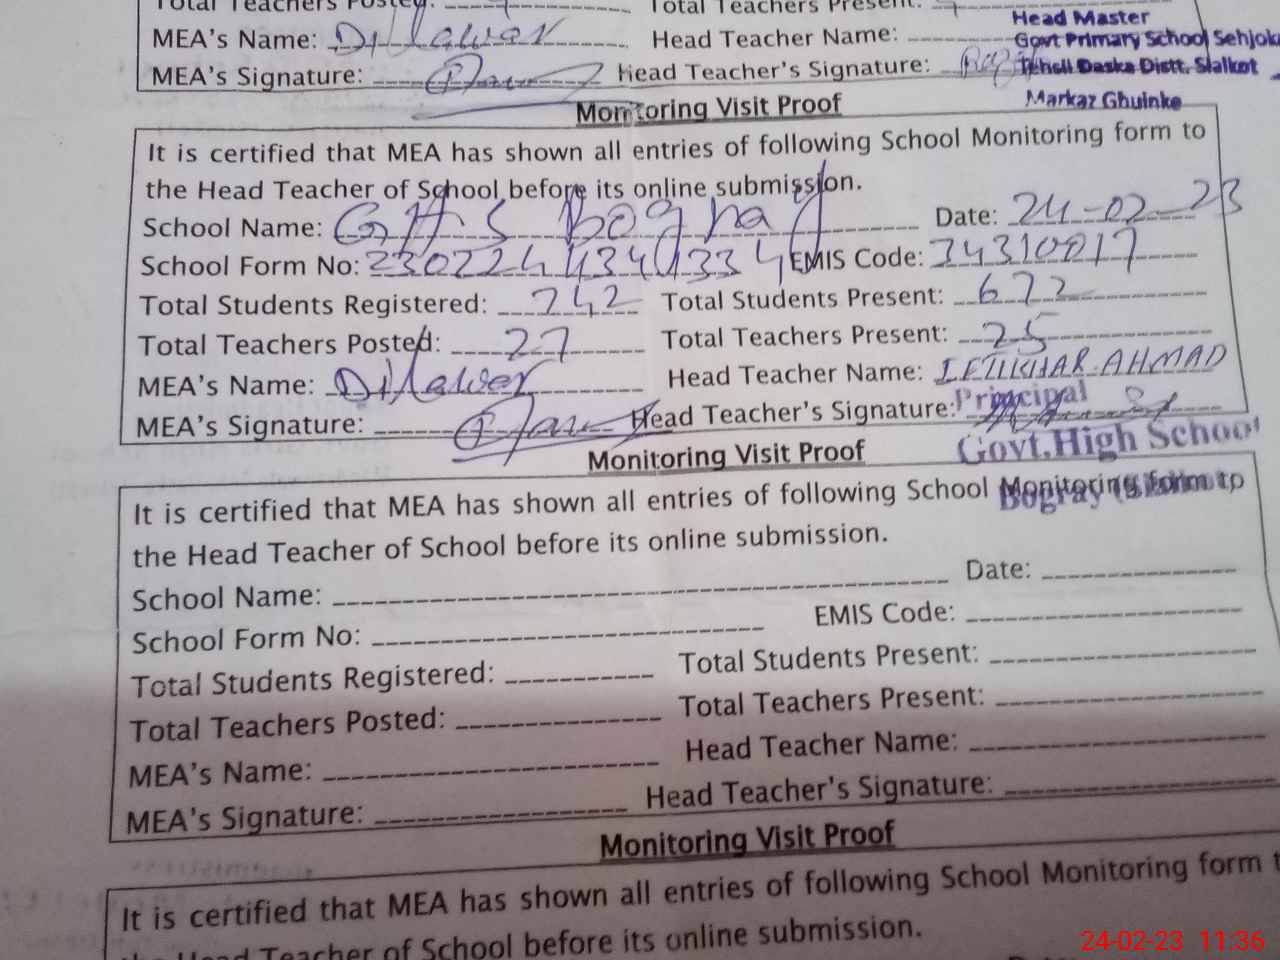 Total Teachers Posted: Total Teachers Present:
Head Master
MEA's Name: Dilawer Head Teacher Name:
Govt Primary School Sehjoka
MEA's Signature: Head Teacher's Signature:
Tehsil Daska Distt. Sialkot
Markaz Ghuinke
Monitoring Visit Proof
It is certified that MEA has shown all entries of following School Monitoring form to
the Head Teacher of School before its online submission.
School Name: GHS Bogray Date: 24-02-23
School Form No: EMIS Code: 34310017
Total Students Registered: 742 Total Students Present: 672
Total Teachers Posted: 27 Total Teachers Present: 25
MEA's Name: Dilawer Head Teacher Name: IFTIKHAR AHMAD
MEA's Signature: Head Teacher's Signature:
Principal
Govt. High School
Bogray (Sialkot)
Monitoring Visit Proof
It is certified that MEA has shown all entries of following School Monitoring form to
the Head Teacher of School before its online submission.
School Name: Date:
School Form No: EMIS Code:
Total Students Registered: Total Students Present:
Total Teachers Posted: Total Teachers Present:
MEA's Name: Head Teacher Name:
MEA's Signature: Head Teacher's Signature:
Monitoring Visit Proof
It is certified that MEA has shown all entries of following School Monitoring form t
the Head Teacher of School before its online submission.
24-02-23 11:36